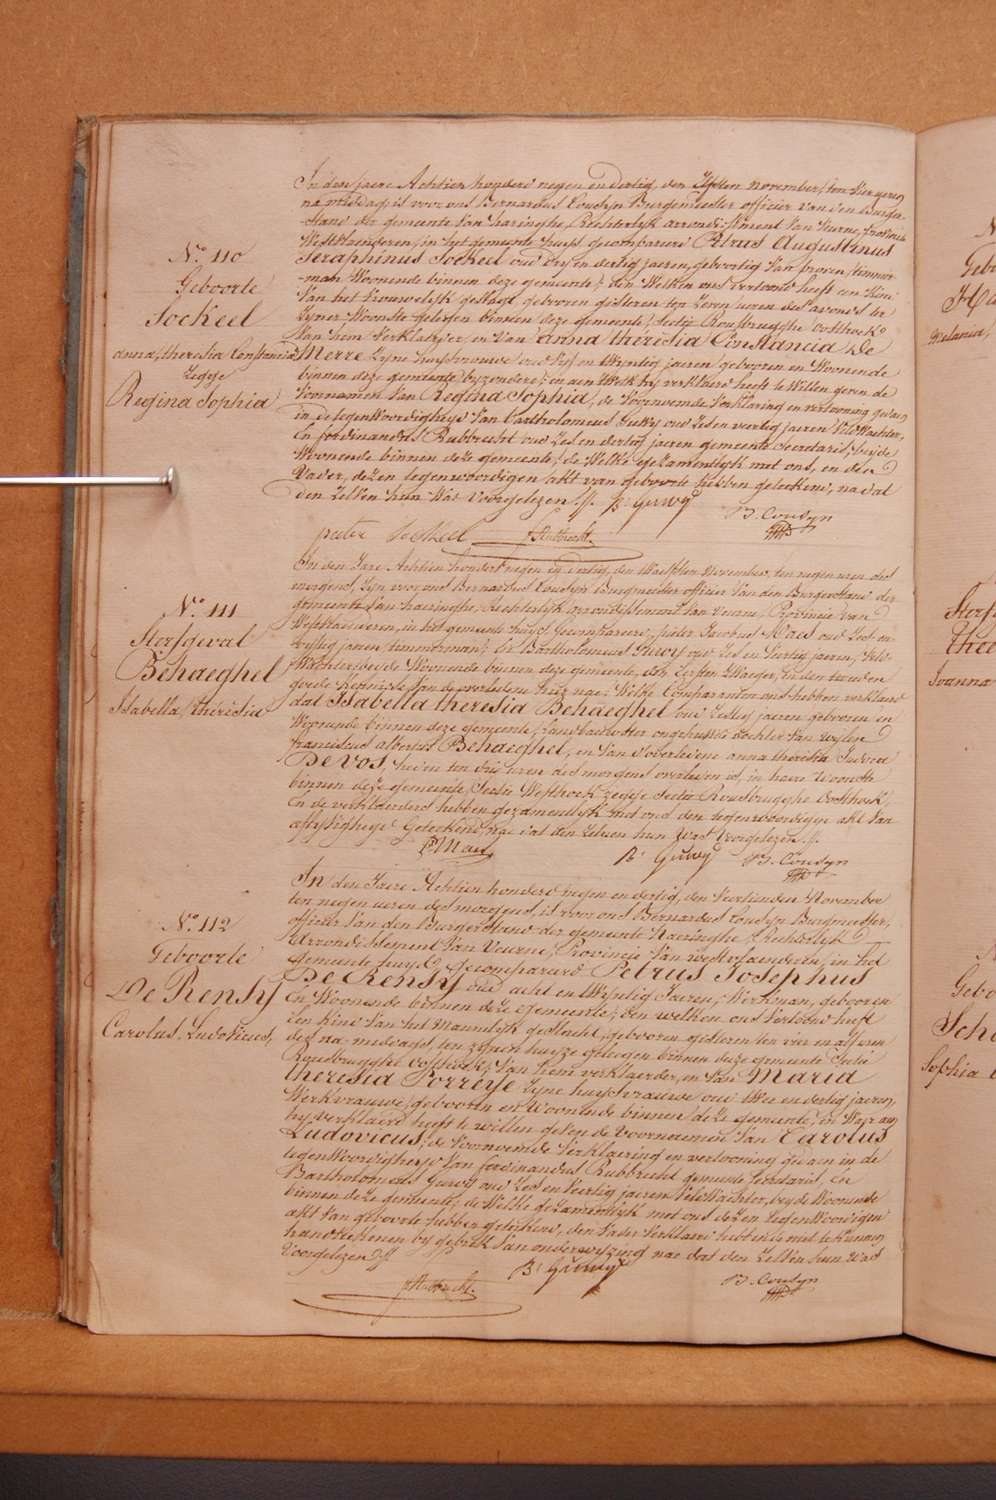 No. 110
Geboorte
Sockeel
anna, theresia Constantia
Zegge
Regina Sophia
In den jaere Achtien honderd negen en dertig, den November, ten vier uren
na middag, is voor ons Bernardus Cousyn Burgemeester officier van den Burger
-stand der gemeente van haringhe, Rechterlyk arrondissement van Veurne, provincie
Westvlaenderen, in het gemeente huys gecompareerd Petrus Augustinus
Seraphinus Sockeel oud dry en dertig jaeren, geboortig van proven, timmer
-man Woonende binnen deze gemeente, den Welken ons vertoond heeft een kind
Van het vrouwelyk geslagt geboren gisteren ten zeven uren des avonds in
Zyner Woonste gelegen binnen deze gemeente, Sectie Rousbrugghe oosthoek
Van hem Verklaerder, en Van anna theresia Constancia De
Merre Zyne huysvrouwe oud Vyf en twyntig jaeren geboren en Woonende
binnen deze gemeente byzondere, en aen Welk hy verklaerd heeft te Willen geven de
Voornamen Van Regina Sophia, de Voornoemde Verklaring en vertooning gedaen
in de tegenWoordigheyd Van bartholomeus Guwy oud Zes en veertig jaeren VeldWachter,
En ferdinandus Rubbrecht oud Zes en dertig jaeren gemeente Secretaris, beyde
Woonende binnen deze gemeente, de Welke gezamentlyk met ons, en den
Vader, dezen tegenwoordigen akt van geboorte hebben geteekend, na dat
den Zelven hun Was Voorgelezen.
B. Guwy
B. Cousyn
pieter Sockeel
f. Rubbrecht
No. 111
Sterfgeval
Behaeghel
Isabella, theresia
In den Jare Achtien honderd negen en dertig, den November, ten negen uren des
morgens, Zyn voor ons Bernardus Cousyn Burgmeester officier Van den Burgerstand der
gemeente Van haeringhe, Rechterlyk arrondissement Van Veurne, Provincie van
Westvlaenderen, in het gemeente huys Gecompareerd, pieter Jacobus Maes oud Zest en
vyftig jaren, timmerman, En Bartholomeus Guwy oud Zes en Veertig jaeren, Veld-
Wachter, beyde Woonende binnen deze gemeente, den Eersten Zwager, en den tweeden
goede kennisse Van de overledene hier na, Welke Comparanten ons hebben verklaerd
dat Isabella theresia Behaeghel oud Zestig jaeren geboren en
Woonende binnen deze gemeente, Landbouwster ongehuwde dochter Van wylen
franciscus albertus Behaeghel, en Van d'overledene anna theresia Judoca
De Vos, heden ten drie uren des morgens overleden is, in haere Woonste
binnen deze gemeente Sectie Westhoek zegge Sectie Rousbrugghe Oosthoek,
En de verklaerders hebben gezamentlyk met ons den tegenwoordigen akt Van
aflyvigheyd Geteekend, nae dat den Zelven hun Was Voorgelezen.
P. Maes
B. Guwy
B. Cousyn
No. 112
Geboorte
De Rensy
Carolus, Ludovicus,
In den Jaere Achtien honderd negen en dertig, den Veertienden November
ten negen uren des morgens, is voor ons Bernardus Cousyn Burgmeester,
officier Van den Burgerstand der gemeente Haeringhe Rechterlyk
Arrondissement Van Veurne, Provincie Van westvlaenderen, in het
gemeente huys Gecompareerd Petrus Josephus
De Rensy oud acht en twyntig Jaeren, Werkman, geboren
En Woonende binnen deze Gemeente, den welken ons Vertoond heeft
een kind Van het Mannelyk geslacht, geboren gisteren ten vier en half uren
des na-middags, ten zynen huyze gelegen binnen deze gemeente Sectie
Rousbrugghe oosthoek, Van hem verklaerder, en Van Maria
theresia Porreye Zyne huysvrauwe oud twee en dertig jaeren,
Werkvrauwe, geboren en Woonende binnen deze gemeente, en Waer aen
hy verklaerd heeft te willen geven de Voornaemen Van Carolus
Ludovicus, de Voornoemde Verklaering en vertooning gedaen in de
tegenWoordigheyd Van ferdinandus Rubbrecht gemeente secretaris, En
Bartholomeus Guwy oud Zes en Veertig jaeren VeldWachter, beyde Woonende
binnen deze gemeente, de Welke gezamentlyk met ons dezen tegenWoordigen
akt Van geboorte hebben geteekend, den Vader Verklaerd hebbende niet te kunnen
handteekenen by gebrek Van onderwyzing nae dat den Zelven hun Was
Voorgelezen.
B. Guwy
B. Cousyn
f. Rubbrecht